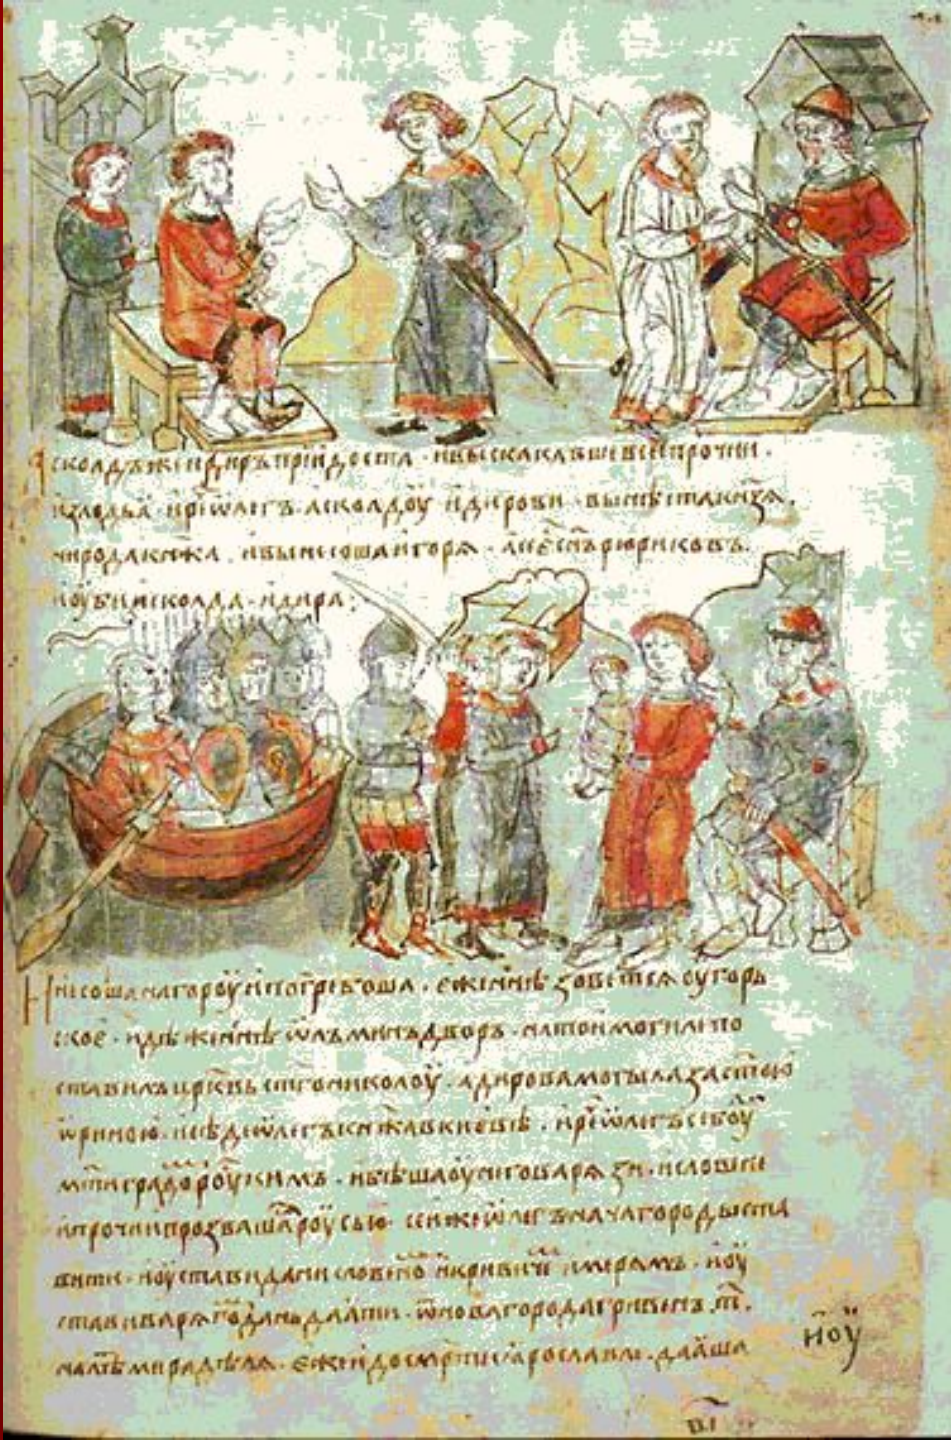 Асколдъ же и Диръ придоста · и выскакавъше вси прочии ·
излодьꙗ · и рⷱ҇е ѡлегъ · асколдоу и дирови · вы нѣста кнѧзѧ ·
ни рода кнѧжа · и вынесоша игорѧ · а се єсть сн҃ъ рюриковъ ·
и оубиша асколда · и дира :
И несоша на гороу и погребоша · еже ннѣ зоветсѧ оугорь
скоє · идѣже ннѣ ѡлъминъ дворъ · на тои могилѣ по
ставилъ црк҃вь ст҃го николоу · а дирова могыла за ст҃ою
ѡриною · и сѣде ѡлегъ кнѧжа в киевѣ · и рⷱ҇е ѡлегъ се боуⷣ
мт҃и градо роускимъ · и бѣша оу него варѧзи · и словѣне
и прочии прозвашасѧ роусью · сеи же ѡлегъ нача городы ста
вити · и оустави дани словѣно и кривичⷨе и мерѧмъ · и оу
стави варѧго дань даѧти · ѿ новагорода гривенъ · т҃ ·
на лѣⷮ мира дѣлѧ · еже и до смр҃ти ꙗрославлѧ · даꙗше
и оу